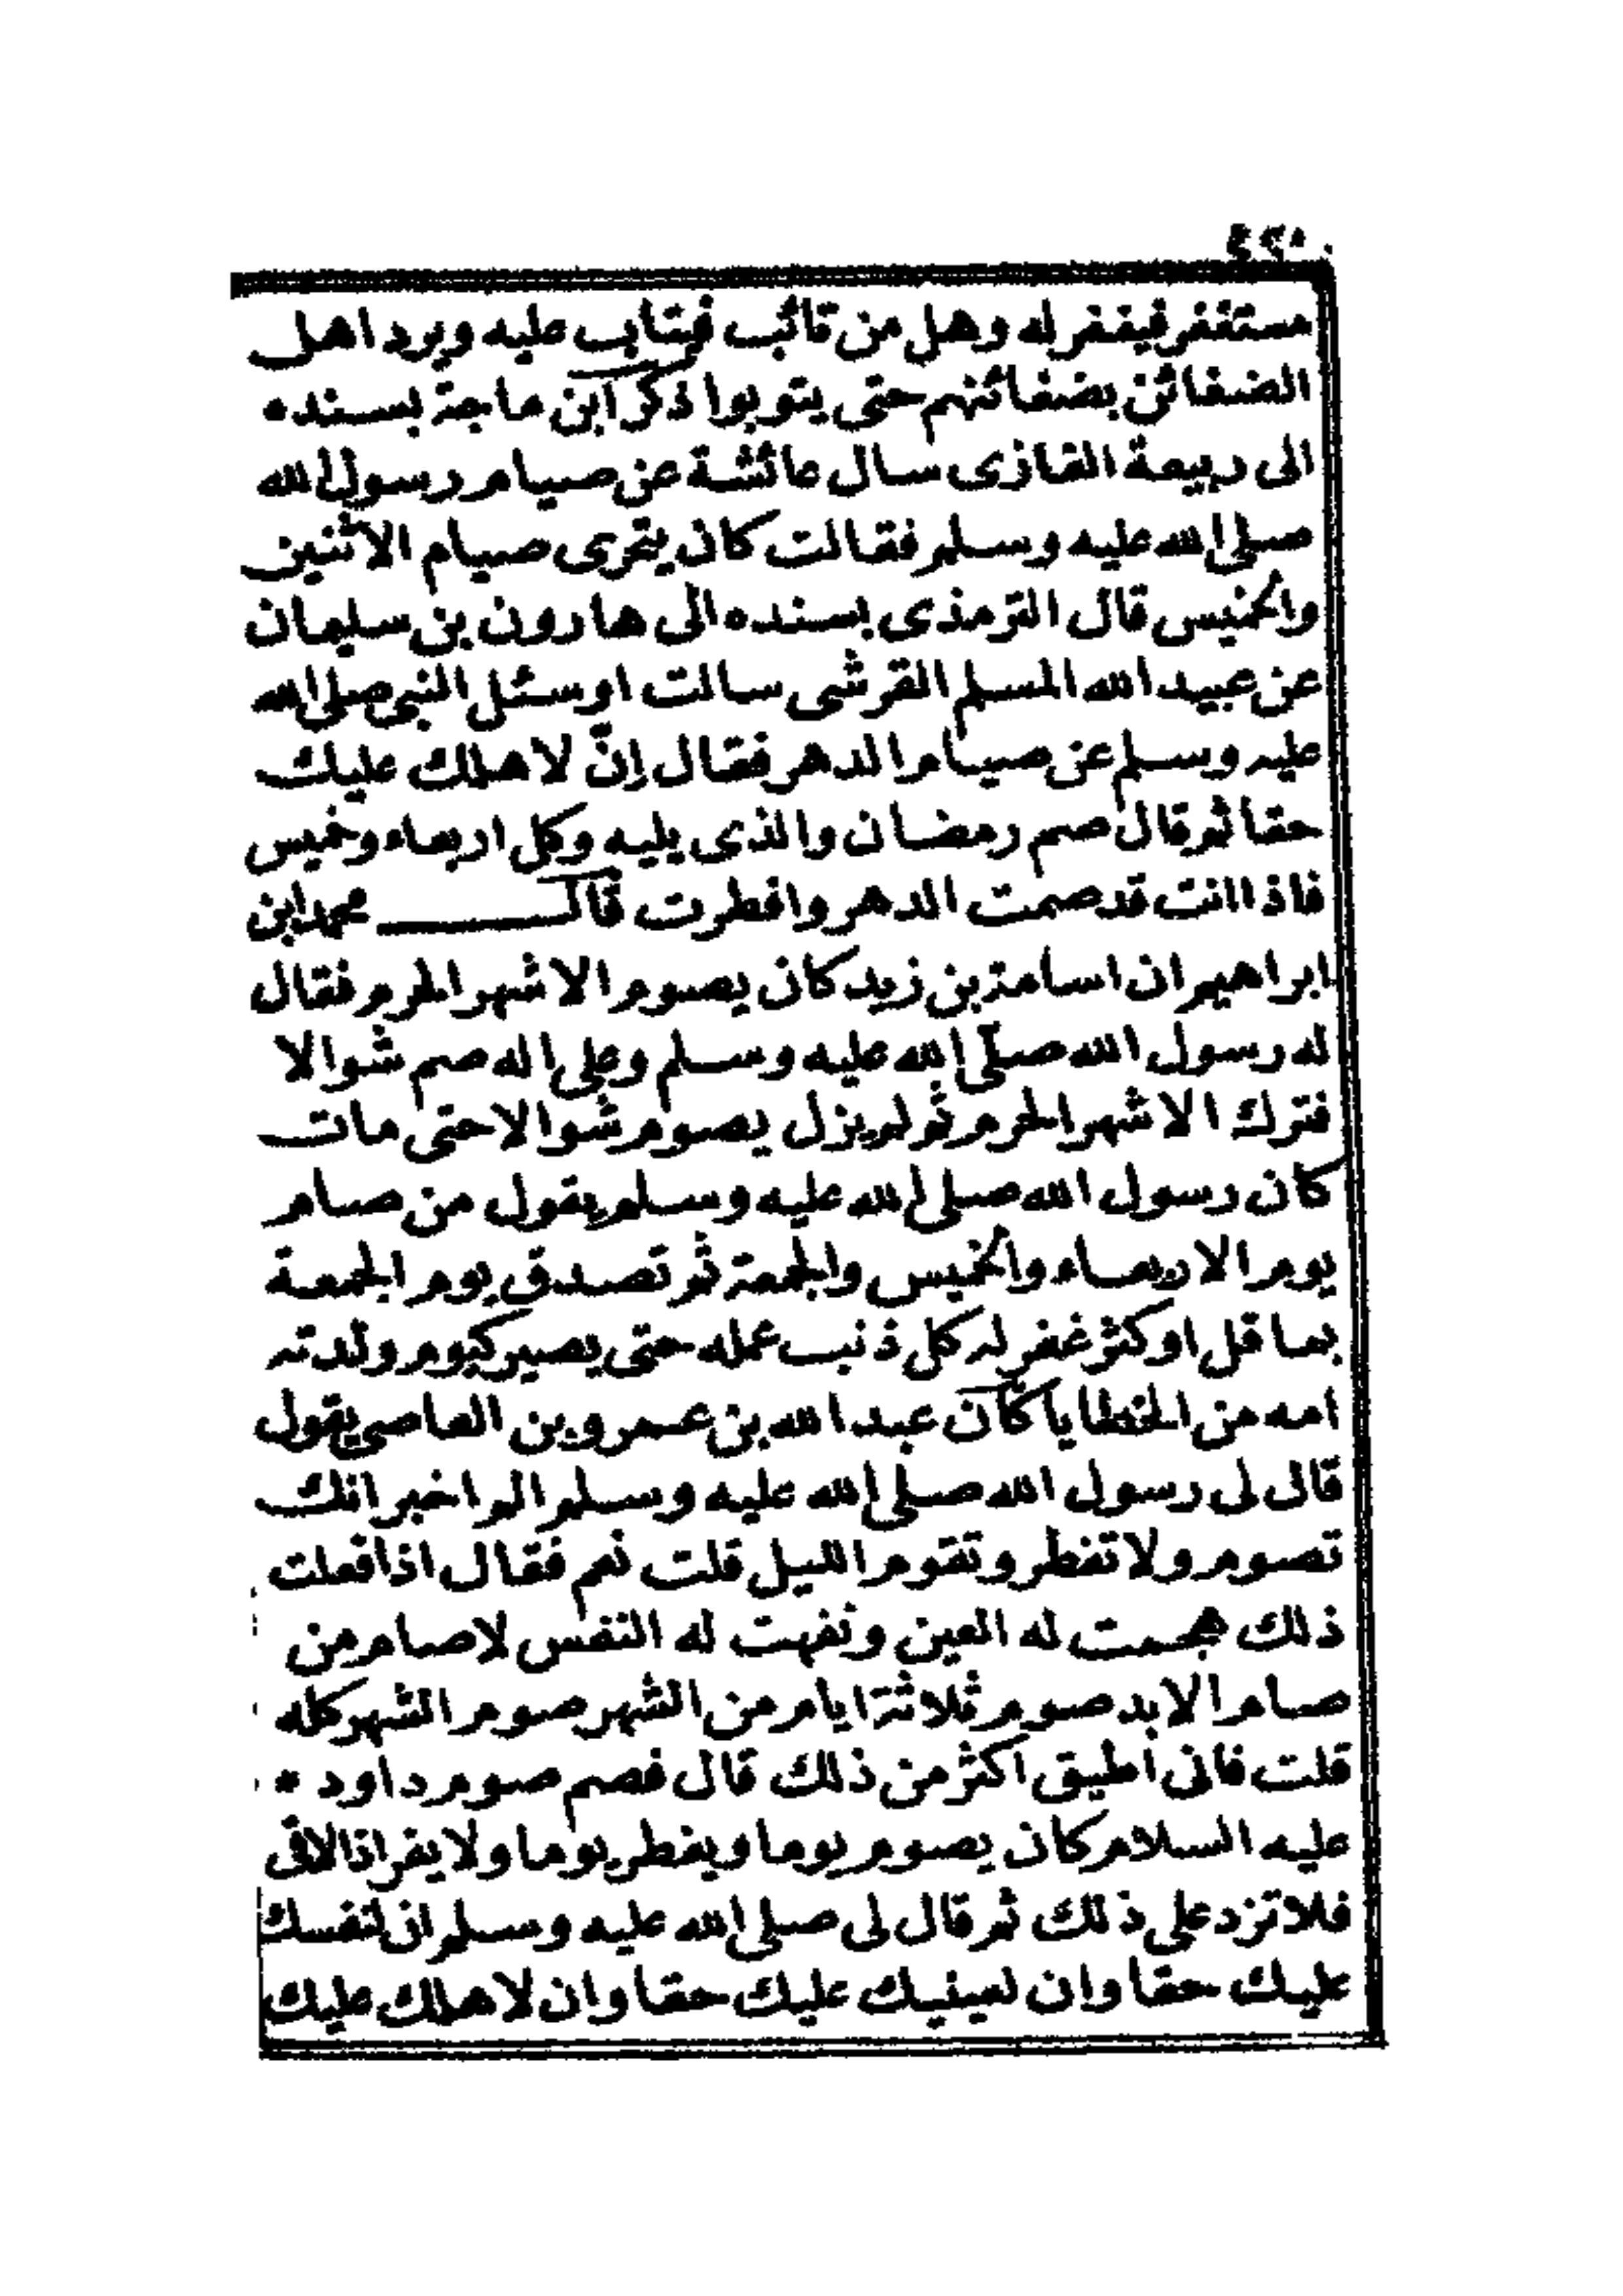 ٤٢٠
مستغفر فيغفر له وهل من تائب فيتاب عليه ويرد اهل
الضغائن بضغائنهم حتى يتوبوا ذكر ابن ماجة بسنده
الى ربيعة الغازى سال عائشة عن صيام رسول الله
صلى الله عليه وسلم فقالت كان يتحرى صيام الاثنين
والخميس قال الترمذى بسنده الى هارون بن سليمان
عن عبيد الله المسلم القرشى سالت اوسئل النبى صلى الله
عليه وسلم عن صيام الدهر فقال إنّ لاهلك عليك
حقا ثم قال صم رمضان والذى يليه وكل اربعاء وخميس
فاذا انت قد صمت الدهر وافطرت قال محمد ابن
ابراهيم ان اسامة بن زيد كان يصوم الاشهر الحرم فقال
له رسول الله صلّى الله عليه وسلم وعلى اله صم شوالا
فترك الاشهر الحرم ثم لم يزل يصوم شوالا حتى مات
كان رسول الله صلى الله عليه وسلم يقول من صام
يوم الاربعاء والخميس والجمعة ثم تصدق يوم الجمعة
بما قل او كثر غفر له كل ذنب عمله حتى يصير كيوم ولدته
امه من الخطايا كان عبد الله بن عمرو بن العاصى يقول
قال لى رسول الله صلى الله عليه وسلم الم اخبر انك
تصوم ولا تفطر وتقوم الليل قلت نعم فقال اذا فعلت
ذلك هجمت له العين ونفهت له النفس لا صام من
صام الابد صوم ثلاثة ايام من الشهر صوم الشهر كله
قلت فانى اطيق اكثر من ذلك قال فصم صوم داود *
عليه السلام كان يصوم يوما ويفطر يوما ولا يفر اذا لاقى
فلا تزد على ذلك ثم قال لى صلى الله عليه وسلم ان لنفسك
عليك حقا وان لعينيك عليك حقا وان لاهلك عليك